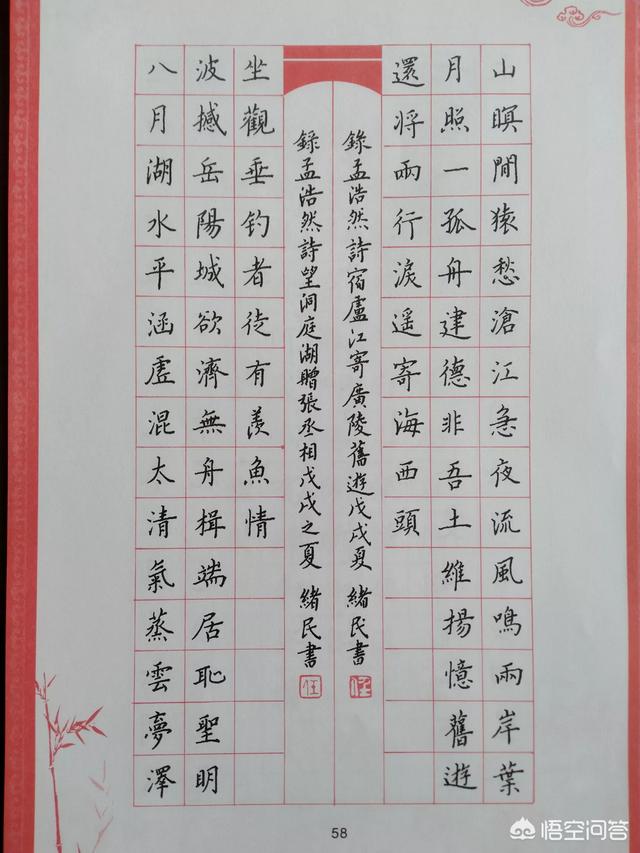 山暝聞猿愁滄江急夜流風鳴兩岸葉
月照一孤舟建德非吾土維揚憶舊遊
還將兩行淚遥寄海西頭
錄孟浩然詩宿盧江寄廣陵舊遊戊戌夏 緒民書
任
八月湖水平涵虛混太清氣蒸雲夢澤
波撼岳陽城欲濟無舟楫端居恥聖明
坐觀垂釣者徒有羨魚情
錄孟浩然詩望洞庭湖贈張丞相戊戌之夏 緒民書
任
58
悟空问答